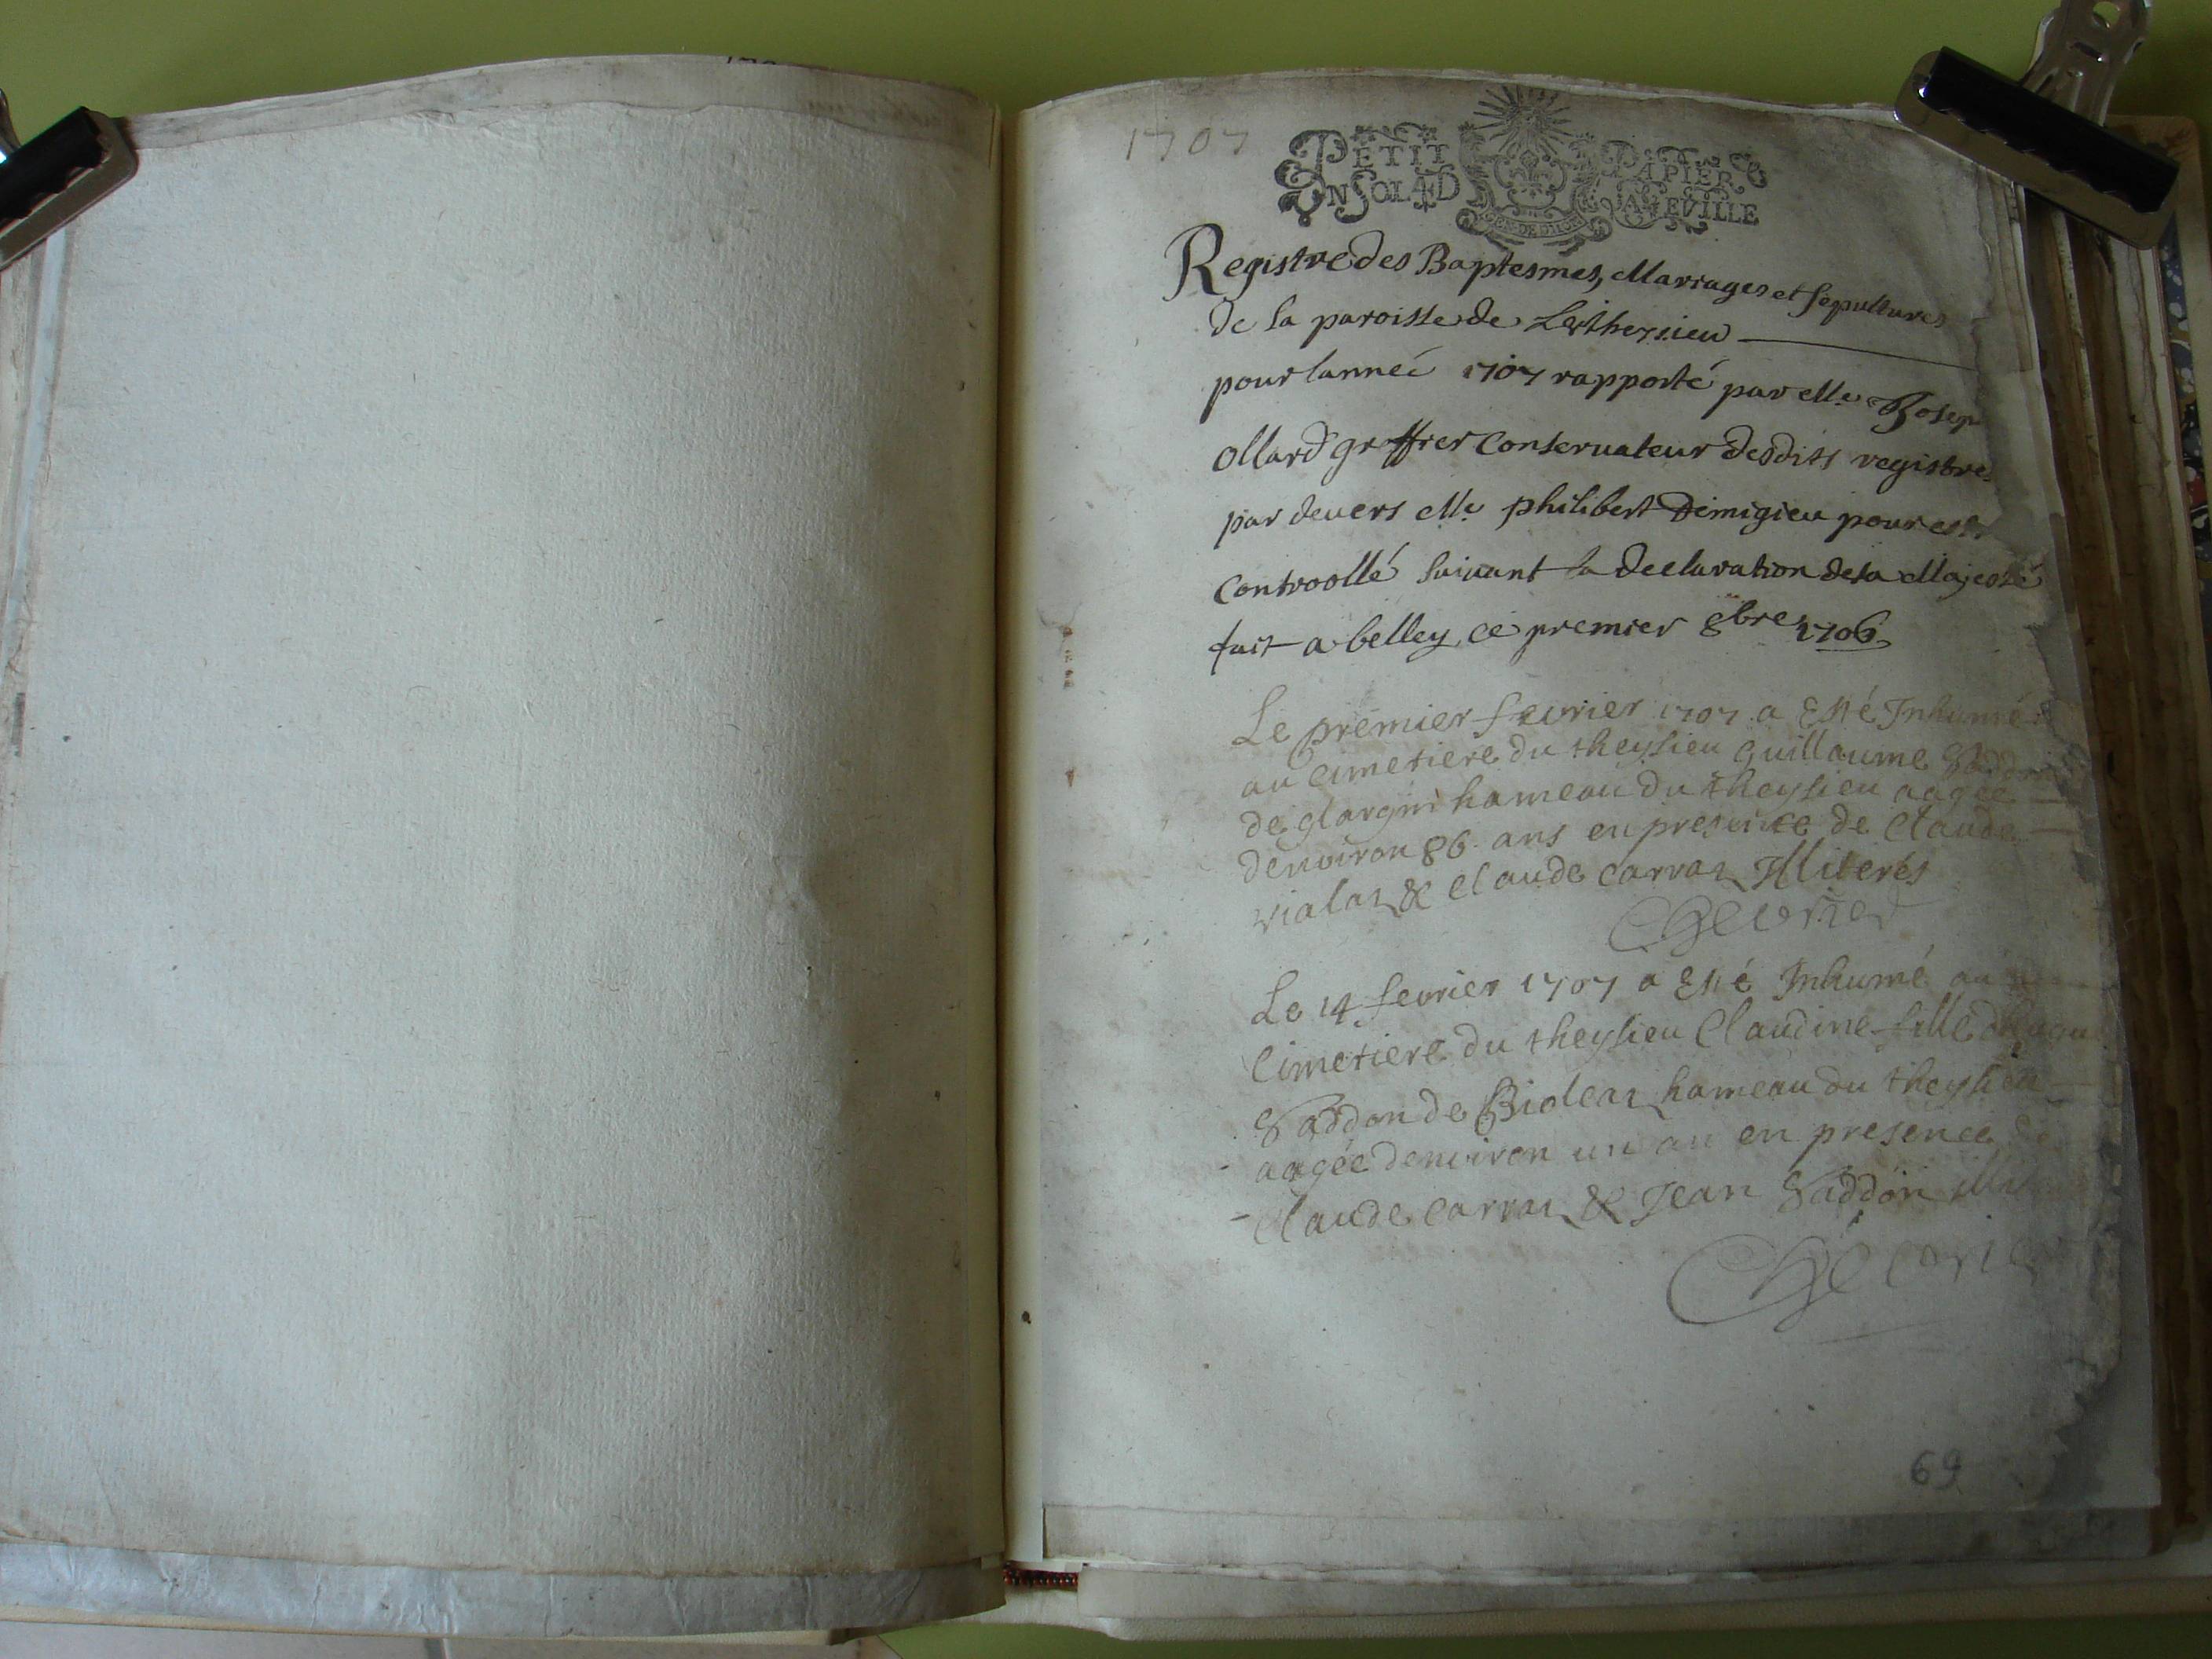 1707
PETIT PAPIER
UN SOL 4 D LA FEVILLE
GEN DE DIION
Registre des Baptesmes, Mariages et sepultures
de la paroisse de Leytheysieu
pour lanneé 1707 rapporté par Me Josep
ollard greffier Conservateur desdits registres
par devers Me philibert Demigieu pour estre
Controollé suivant la declaration de sa Majesté
fait a belley ce premier 8bre 1706
Le premier fevrier 1707 a Esté Inhumé
au cimetiere du theysieu guillaume Gaddon
de glargin hameau du theysieu aagée
denviron 86 ans en presence de Claude
vialaz & Claude Carraz Illiterés
Chevrier
Le 14 fevrier 1707 a Esté Inhumé au
Cimetiere du theysieu Claudine fille
Gaddon de Bioleaz hameau du theysieu
aagée denviron un an en presence de
Claude Carraz & Jean Gaddon
Chevrier
69